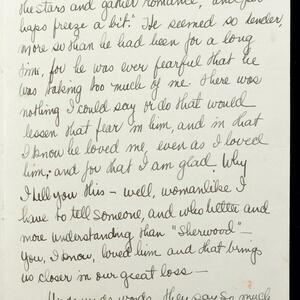 the stars and gather romance, and per-
haps freeze a bit." He seemed so tender,
more so than he had been for a long
time, for he was ever fearful that he
was taking too much of me. There was
nothing I could say or do that would
lessen that fear in him, and in that
I know he loved me, even as I loved
him, and for that I am glad. Why
I tell you this – well, womanlike I
have to tell someone, and who better and
more understanding than "Sherwood" –
You, I know, loved him and that brings
us closer in our great loss –
words, they say so much